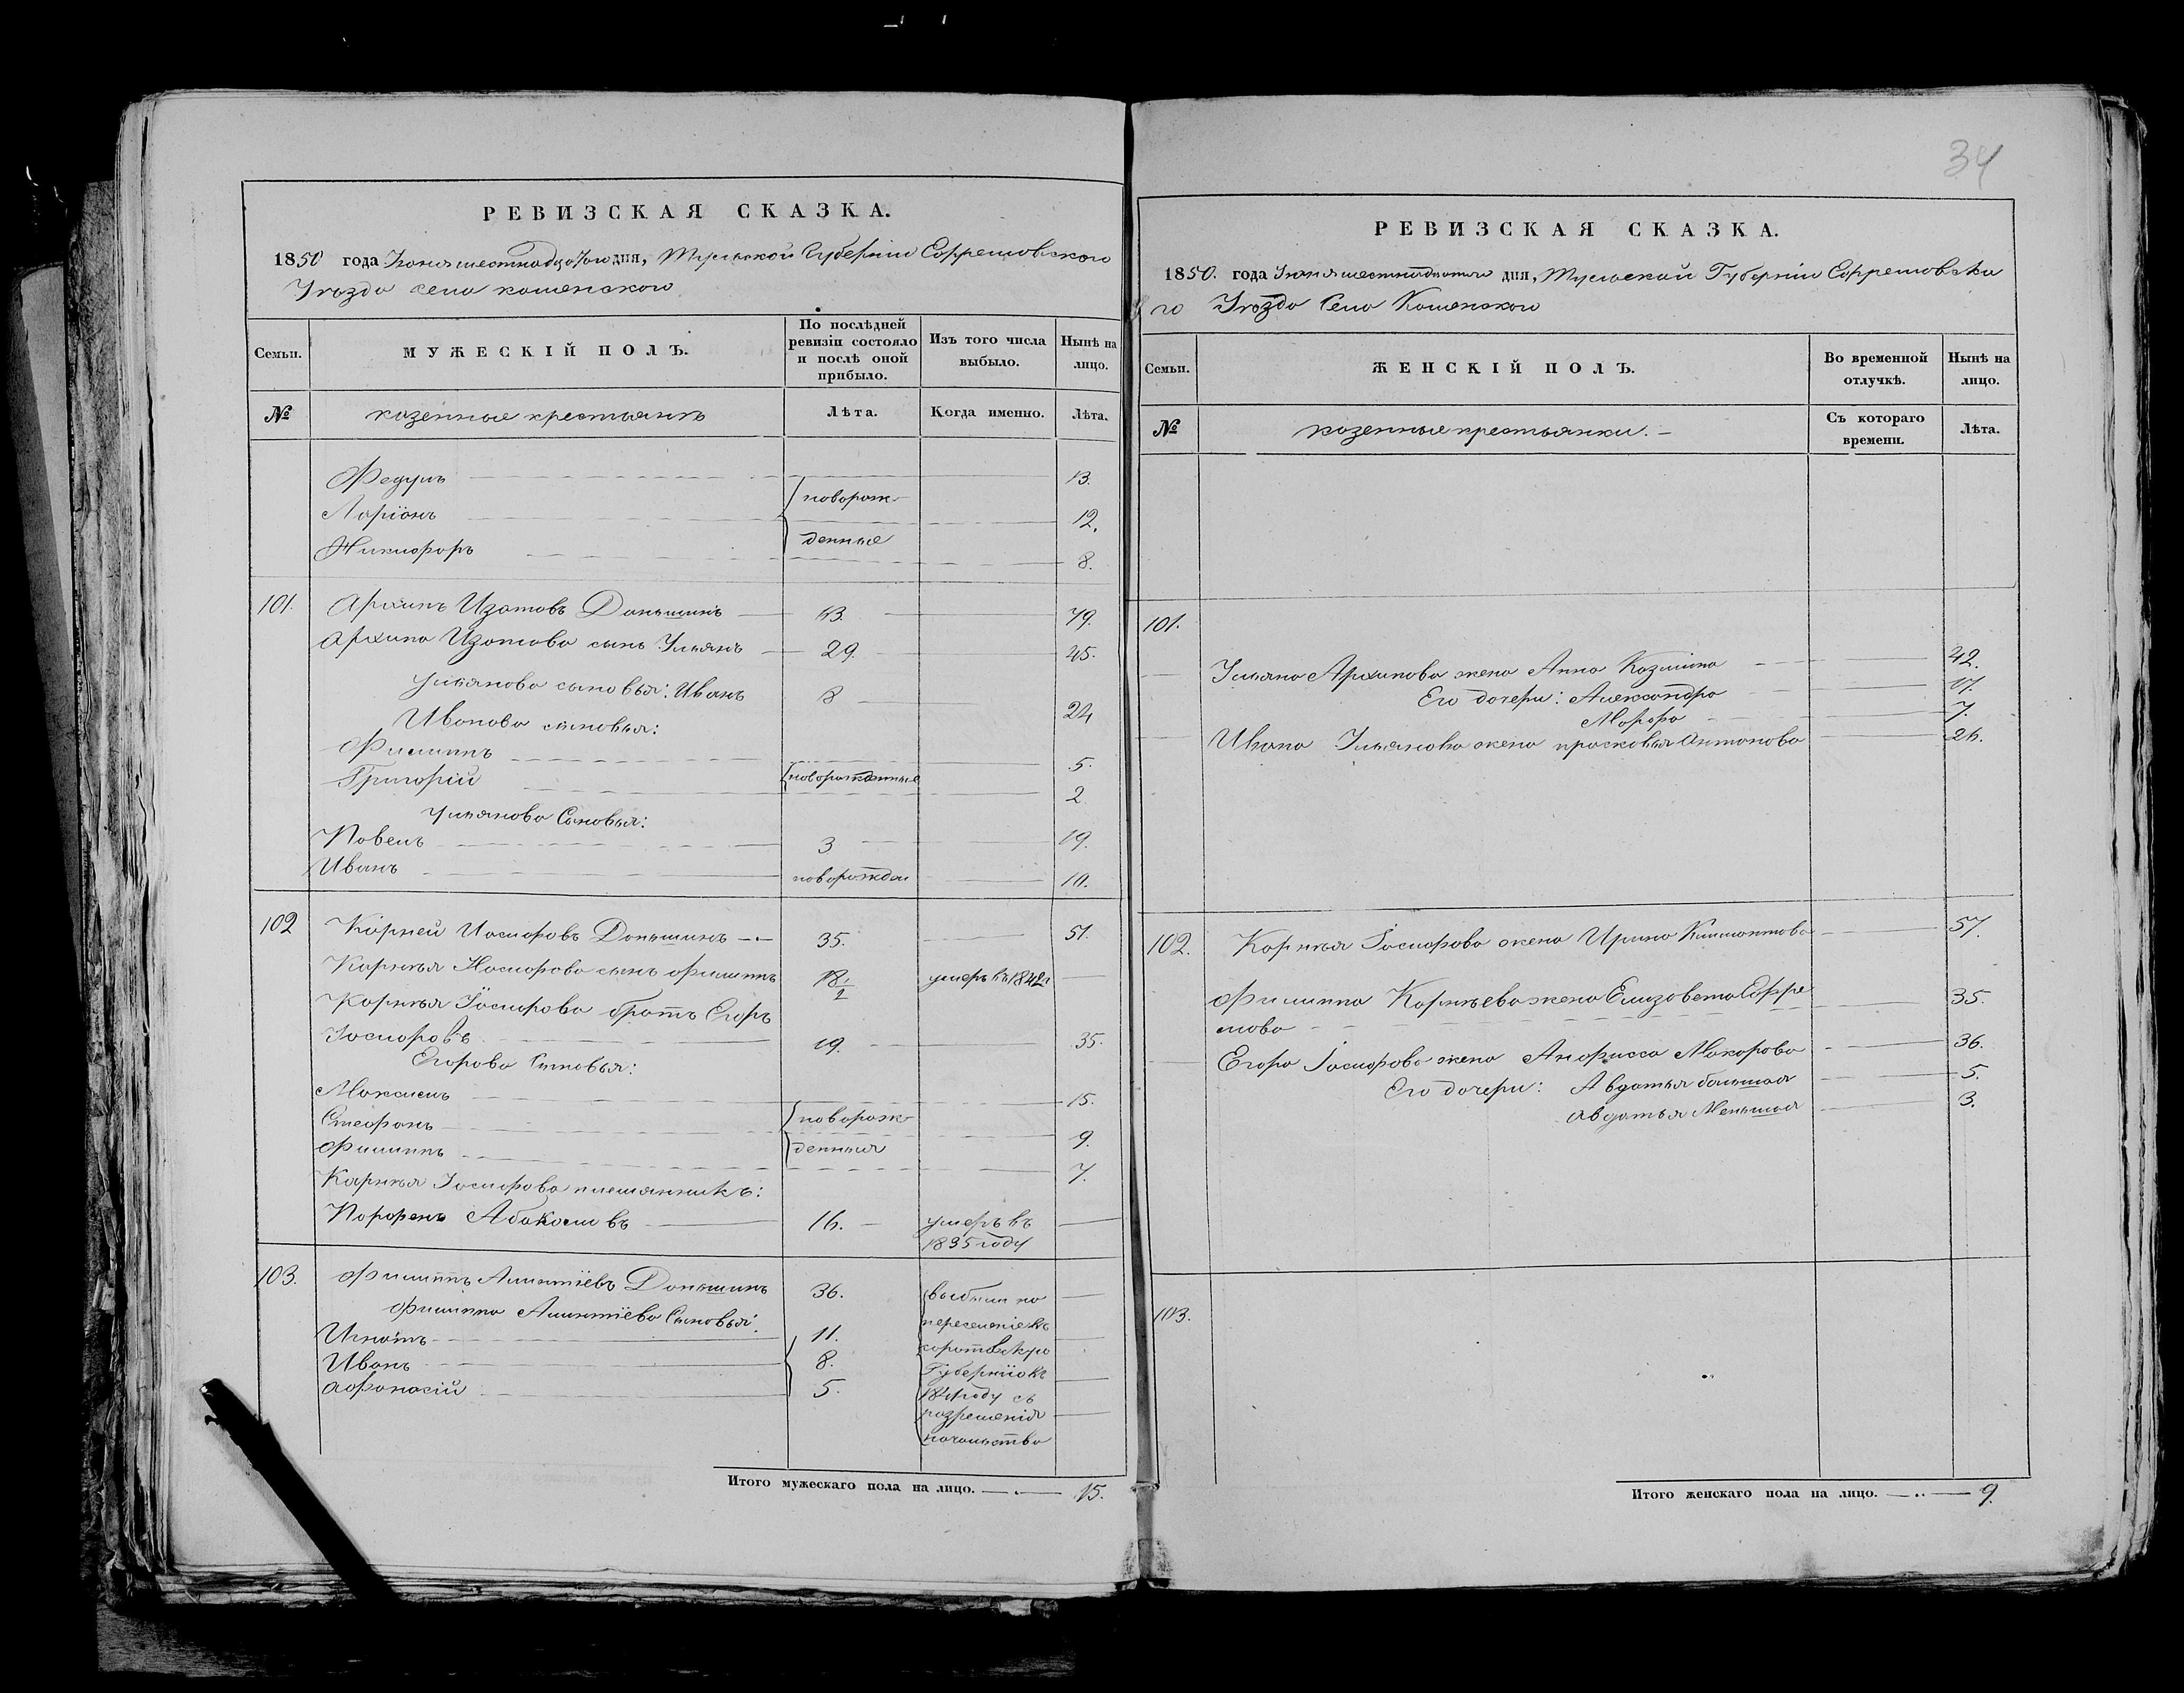 34
РЕВИЗСКАЯ СКАЗКА.
1850 года Іюня шестнадцатого дня, Тульской Губерніи Ефремовскаго
Уѣзда села каменскаго
Семьи. МУЖЕСКІЙ ПОЛЪ. По послѣдней ревизіи состояло и послѣ оной прибыло. Изъ того числа выбыло. Нынѣ на лицо.
№ казенные крестьянъ Лѣта. Когда именно. Лѣта.
Федулъ 13.
Ларіонъ новорож- 12.
Никифоръ денные 8.
101. Архипъ Изотовъ Даньшинъ 63. 79.
Архипа Изотова сынъ Ульянъ 29. 45.
Ульянова сыновья: Иванъ 8 24
Иванова сыновья:
Филиппъ 5.
Григорій новорожденные 2
Ульянова Сыновья:
Повелъ 3 19.
Иванъ новорожден 10.
102 Корней Иосифовъ Даньшинъ 35. 51.
Корнѣя Иосифова сынъ филиппъ 18 1/2 умеръ въ 1842
Корнѣя Іосифова братъ Егоръ
Іосифовъ 19. 35.
Егорова Сыновья:
Максимъ 15.
Стефанъ новорож- 9.
Филиппъ денныя 7.
Карнѣя Іосифова племянникъ:
Порфенъ Абакомивъ 16. умеръ въ
1835 году
103. Филиппъ Алинтіевъ Даньшинъ 36. выбыли по
филиппа Алинтіева Сыновья: переселеніе въ
Игнатъ 11. саратовскую
Иванъ 8. Губернію въ
Афонасій 5. году съ
разрешенія
начальства
Итого мужескаго пола на лицо. 15.
РЕВИЗСКАЯ СКАЗКА.
1850. года Іюня шестнадцатаго дня, Тульской Губерніи Ефремовска
го Уѣзда Села Каменскаго
Семьи. ЖЕНСКІЙ ПОЛЪ. Во временной отлучкѣ. Нынѣ на лицо.
№ казенные крестьянки. Съ котораго времени. Лѣта.
101.
Ульяна Архипова жена Анна Козмина 42.
Его дочери: Александра 17.
Марфа 7.
Ивана Ульянова жена прасковья Антонова 26.
102. Карнѣя Іосифова жена Ирина Климантова 57.
Филиппа Карнѣева жена Елизовета Ефре 35.
мова
Егора Іосифова жена Анфисса Макарова 36.
Его дочери: Авдатья большая 5.
Авдатья Меньшая 3.
103.
Итого женскаго пола на лицо. 9.